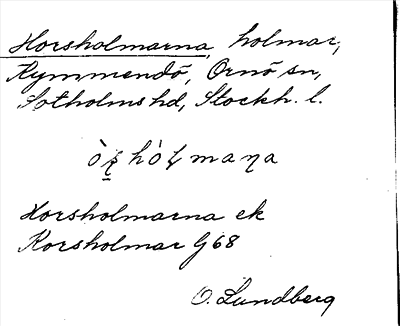 Horsholmarna, holmar,
Kymmendö, Ornö sn,
Sotholms hd, Stockh. l.
Horsholmarna ek
Korsholmar G 68
O. Lundberg